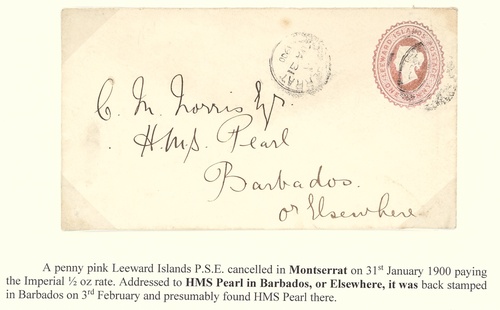 LEEWARD ISLANDS
C. M. Norris Esq.
H.M.S. Pearl
Barbados.
or Elsewhere
A penny pink Leeward Islands P.S.E. cancelled in Montserrat on 31st January 1900 paying
the Imperial ½ oz rate. Addressed to HMS Pearl in Barbados, or Elsewhere, it was back stamped
in Barbados on 3rd February and presumably found HMS Pearl there.